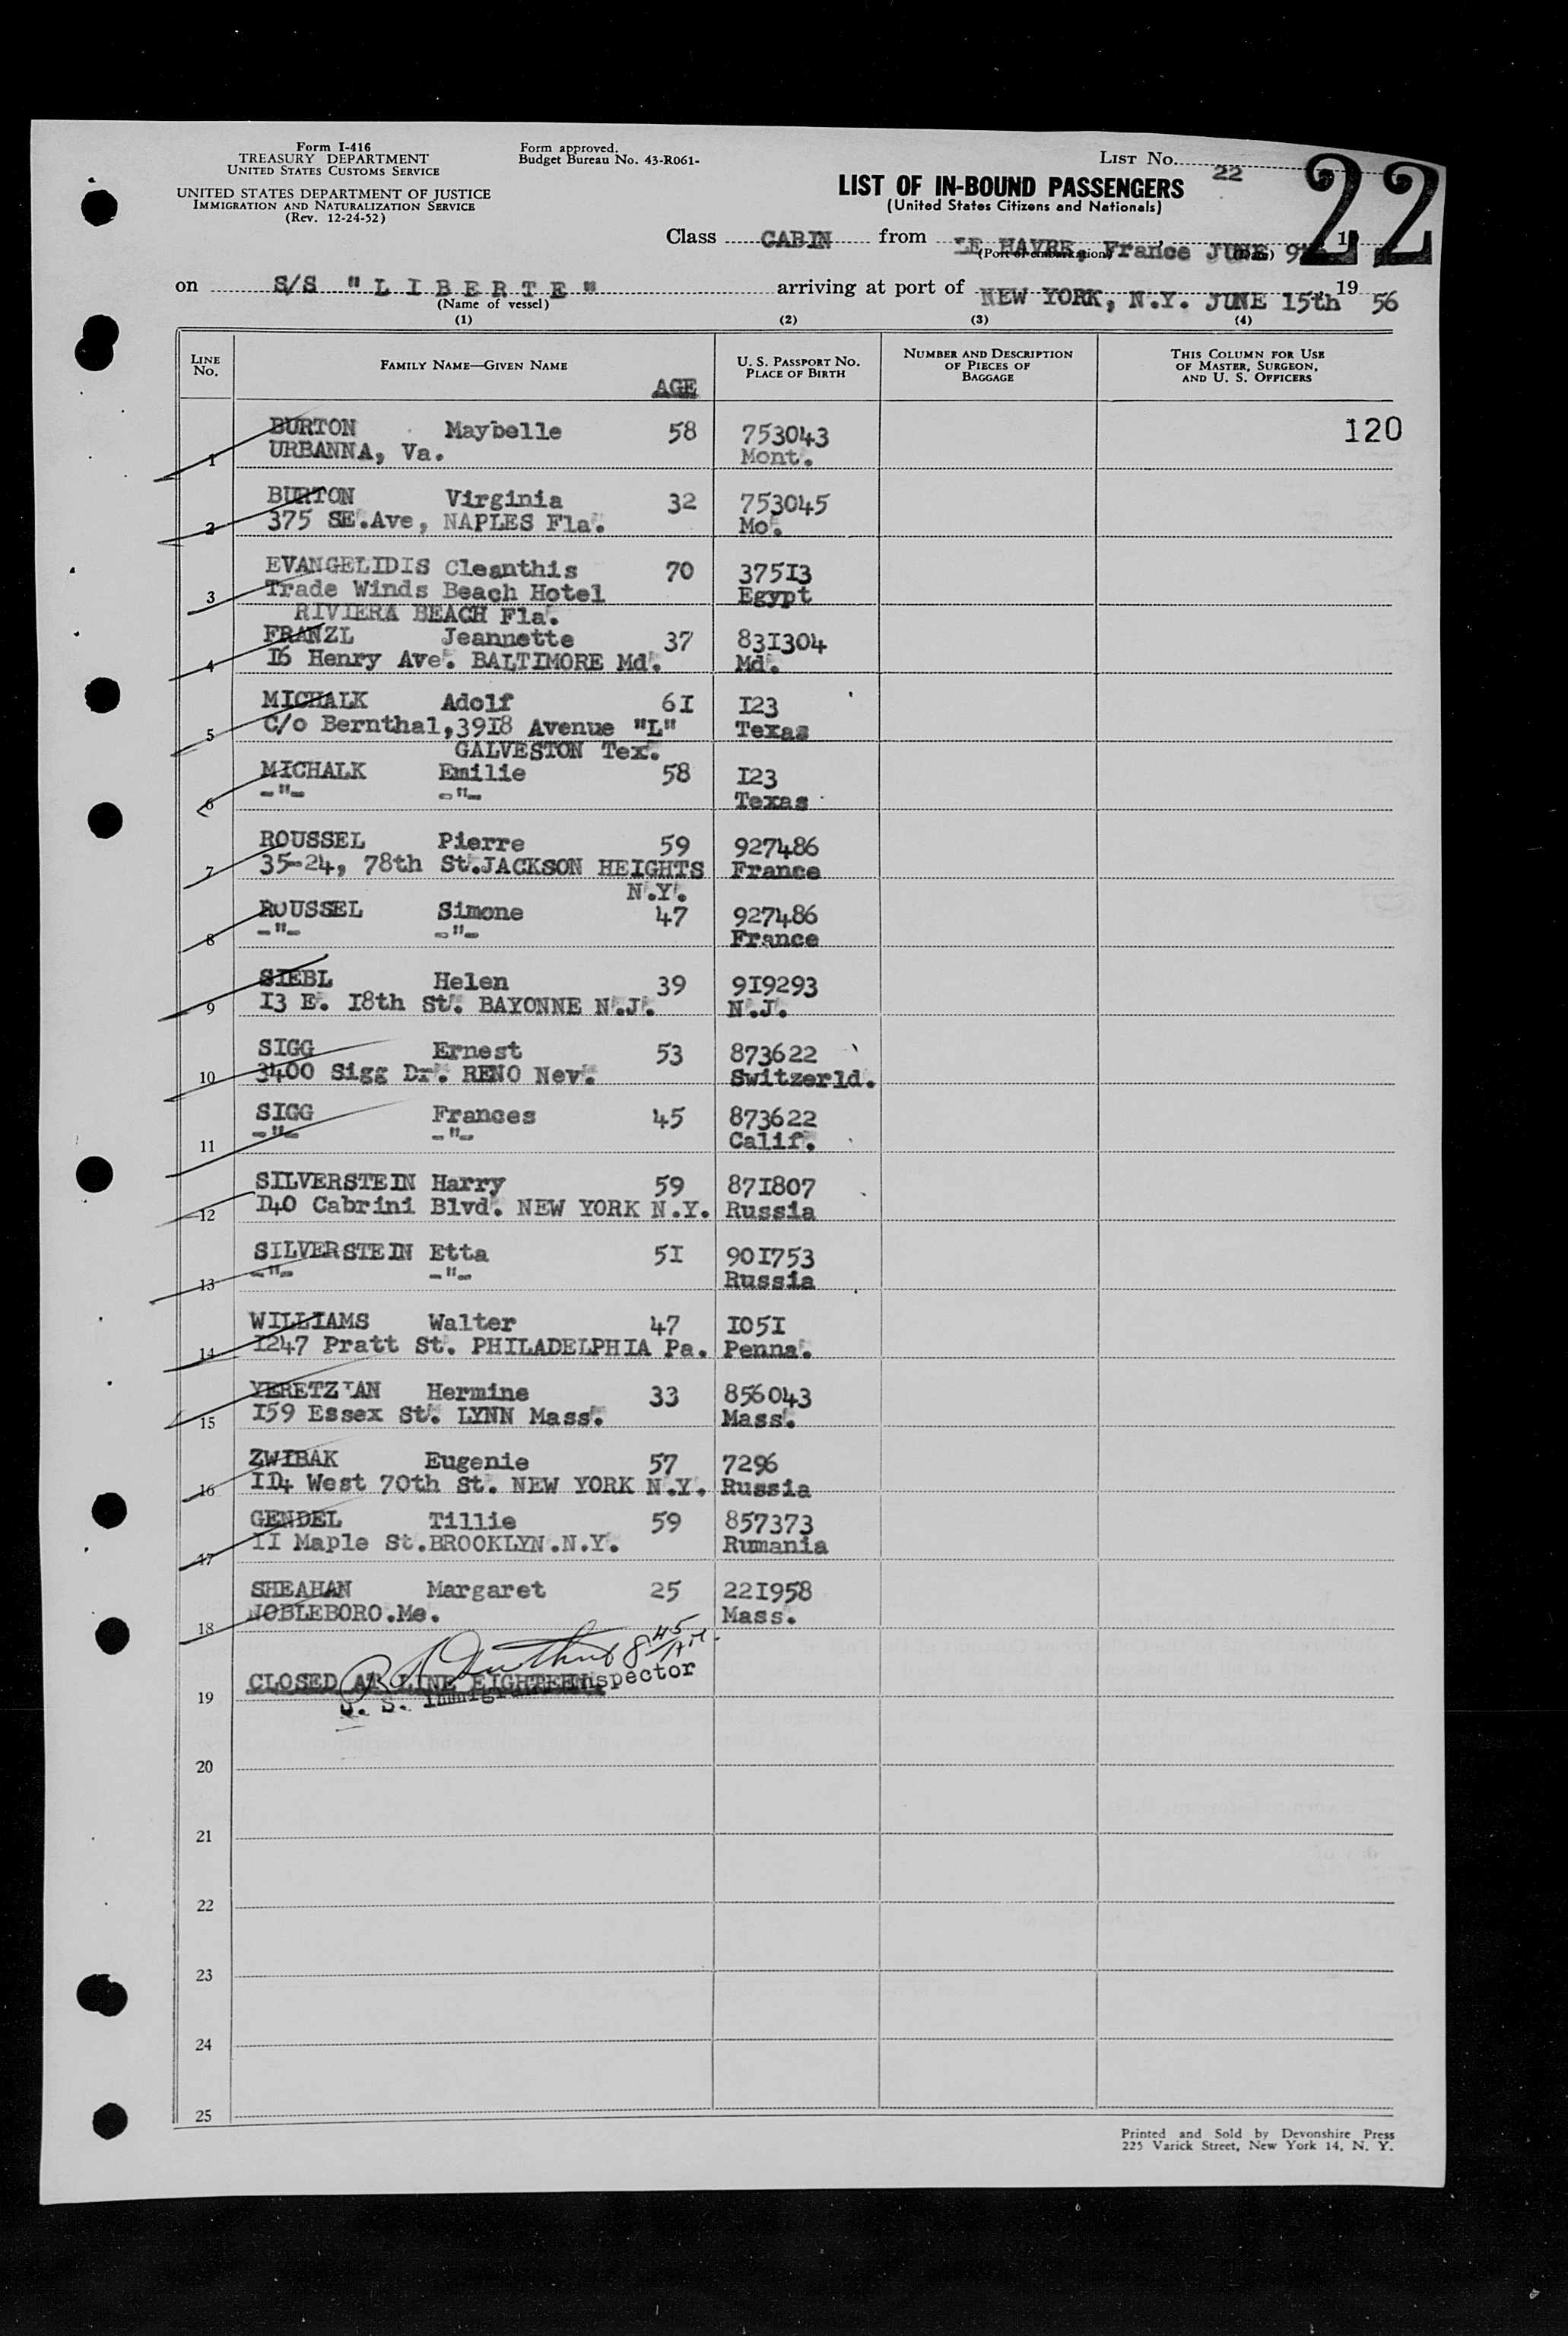 Form I-416
TREASURY DEPARTMENT
UNITED STATES CUSTOMS SERVICE
UNITED STATES DEPARTMENT OF JUSTICE
IMMIGRATION AND NATURALIZATION SERVICE
(Rev. 12-24-52)
Form approved.
Budget Bureau No. 43-R061-
LIST NO. 22
22
LIST OF IN-BOUND PASSENGERS
(United States Citizens and Nationals)
Class CABIN from LE HAVRE, France JUNE 9
(Port of embarkation) (Date)
on S/S "L I B E R T E" arriving at port of NEW YORK, N.Y. JUNE 15th 19 56
(Name of vessel)
(1) (2) (3) (4)
LINE NO. FAMILY NAME—GIVEN NAME AGE U. S. PASSPORT NO. PLACE OF BIRTH NUMBER AND DESCRIPTION OF PIECES OF BAGGAGE THIS COLUMN FOR USE OF MASTER, SURGEON, AND U. S. OFFICERS
BURTON Maybelle 58 753043 120
1 URBANNA, Va. Mont.
BURTON Virginia 32 753045
2 375 SE.Ave, NAPLES Fla. Mo.
EVANGELIDIS Cleanthis 70 375I3
3 Trade Winds Beach Hotel Egypt
RIVIERA BEACH Fla.
FRANZL Jeannette 37 83I304
4 I6 Henry Ave. BALTIMORE Md. Md.
MICHALK Adolf 6I I23
5 C/o Bernthal,39I8 Avenue "L" Texas
GALVESTON Tex.
MICHALK Emilie 58 I23
6 -"- -"- Texas
ROUSSEL Pierre 59 927486
7 35-24, 78th St.JACKSON HEIGHTS France
N.Y.
ROUSSEL Simone 47 927486
8 -"- -"- France
SIEBL Helen 39 9I9293
9 I3 E. I8th St. BAYONNE N.J. N.J.
SIGG Ernest 53 873622
10 3400 Sigg Dr. RENO Nev. Switzerld.
SIGG Frances 45 873622
11 -"- -"- Calif.
SILVERSTEIN Harry 59 87I807
12 I40 Cabrini Blvd. NEW YORK N.Y. Russia
SILVERSTEIN Etta 5I 90I753
13 -"- -"- Russia
WILLIAMS Walter 47 I05I
14 I247 Pratt St. PHILADELPHIA Pa. Penna.
YERETZIAN Hermine 33 856043
15 I59 Essex St. LYNN Mass. Mass.
ZWIBAK Eugenie 57 7296
16 II4 West 70th St. NEW YORK N.Y. Russia
GENDEL Tillie 59 857373
17 II Maple St.BROOKLYN.N.Y. Rumania
SHEAHAN Margaret 25 22I958
18 NOBLEBORO.Me. Mass.
8 45 AM
19 CLOSED AT LINE EIGHTEEN
U. S. Immigrant Inspector
20
21
22
23
24
25
Printed and Sold by Devonshire Press
225 Varick Street, New York 14, N. Y.